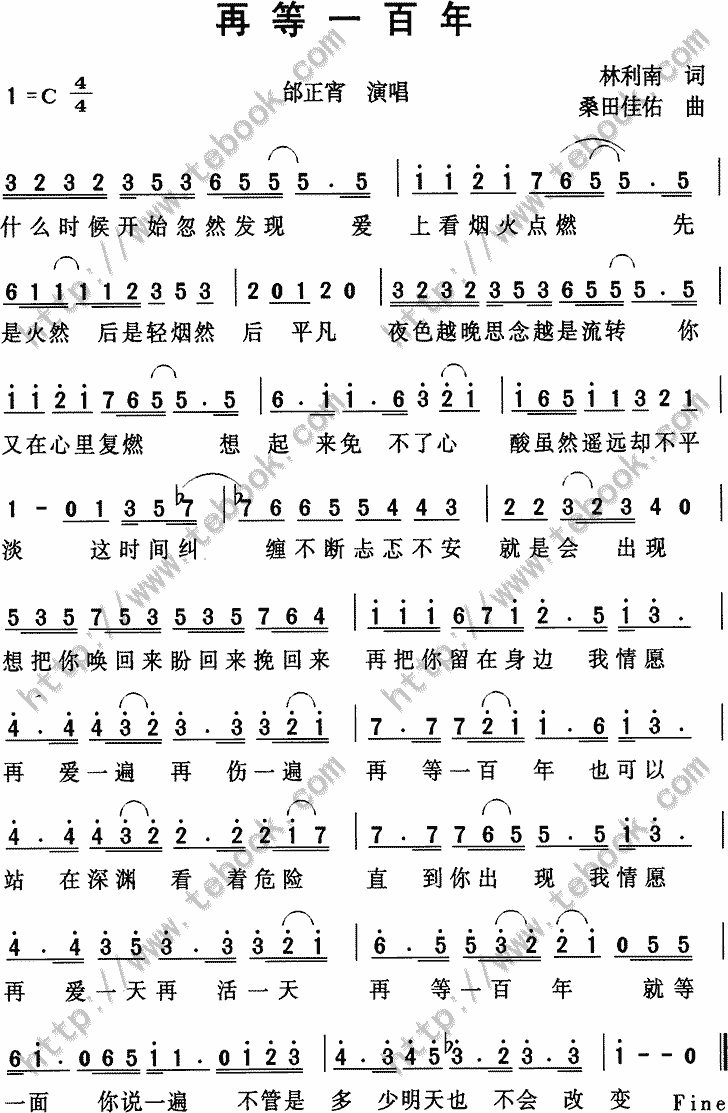 再等一百年
1=C 4/4 邰正宵 演唱 林利南 词
桑田佳佑 曲
3 2 3 2 3 5 3 6 5 5 5 . 5 | i i 2 i 7 6 5 5 . 5
什么时候开始忽然发现 爱 上看烟火点燃 先
6 1 1 1 1 2 3 5 3 | 2 0 1 2 0 | 3 2 3 2 3 5 3 6 5 5 5 . 5
是火然 后是轻烟然 后 平凡 夜色越晚思念越是流转 你
i i 2 i 7 6 5 5 . 5 | 6 . i i . 6 3 2 i | i 6 5 i 1 3 2 1
又在心里复燃 想 起 来免 不了心 酸虽然遥远却不平
1 - 0 1 3 5 ♭7 | ♭7 6 6 5 5 4 4 3 | 2 2 3 2 3 4 0
淡 这时间纠 缠不断忐忑不安 就是会 出现
5 3 5 7 5 3 5 3 5 7 6 4 | i i i 6 7 i 2 . 5 i 3 .
想把你唤回来盼回来挽回来 再把你留在身边 我情愿
4 . 4 4 3 2 3 . 3 3 2 i | 7 . 7 7 2 i i . 6 i 3 .
再 爱一遍 再 伤一遍 再 等一百 年 也可以
4 . 4 4 3 2 2 . 2 2 i 7 | 7 . 7 7 6 5 5 . 5 i 3 .
站 在深渊 看 着危险 直 到你出 现 我情愿
4 . 4 3 5 3 . 3 3 2 i | 6 . 5 5 3 2 2 i 0 5 5
再 爱一天再 活一天 再 等一百 年 就等
6 i . 0 6 5 i 1 . 0 i 2 3 | 4 . 3 4 5 ♭3 . 2 3 . 3 | i - - 0 ‖
一面 你说一遍 不管是 多 少明天也 不会 改 变 Fine
http://www.tebook.com